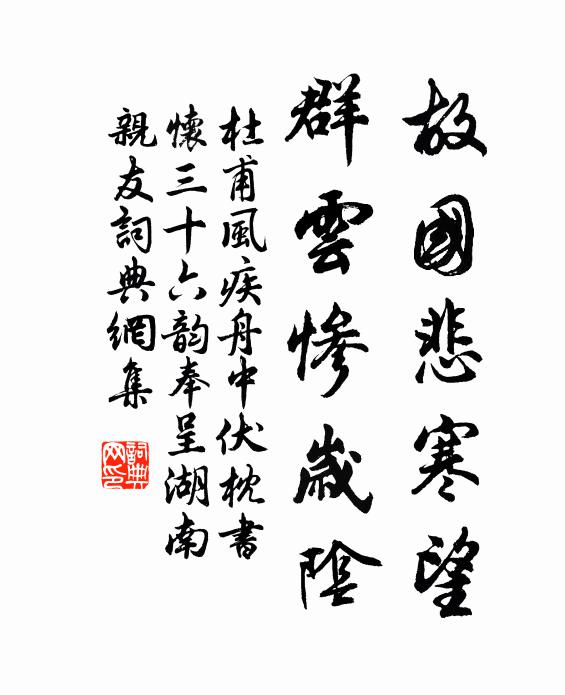 故國悲寒望
群雲慘歲陰
杜甫風疾舟中伏枕書
懷三十六韵奉呈湖南
親友詞典網集
詞典網印